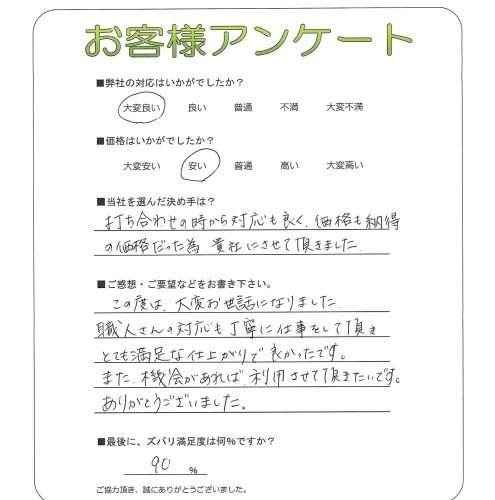 お客様アンケート
■弊社の対応はいかがでしたか？
大変良い 良い 普通 不満 大変不満
■価格はいかがでしたか？
大変安い 安い 普通 高い 大変高い
■当社を選んだ決め手は？
打ち合わせの時から対応も良く、価格も納得
の価格だった為 貴社にさせて頂きました。
■ご感想・ご要望などをお書き下さい。
この度は、大変お世話になりました。
職人さんの対応も丁寧に仕事をして頂き
とても満足な仕上がりで良かったです。
また、機会があれば、利用させて頂きたいです。
ありがとうございました。
■最後に、ズバリ満足度は何%ですか？
90 %
ご協力頂き、誠にありがとうございました。